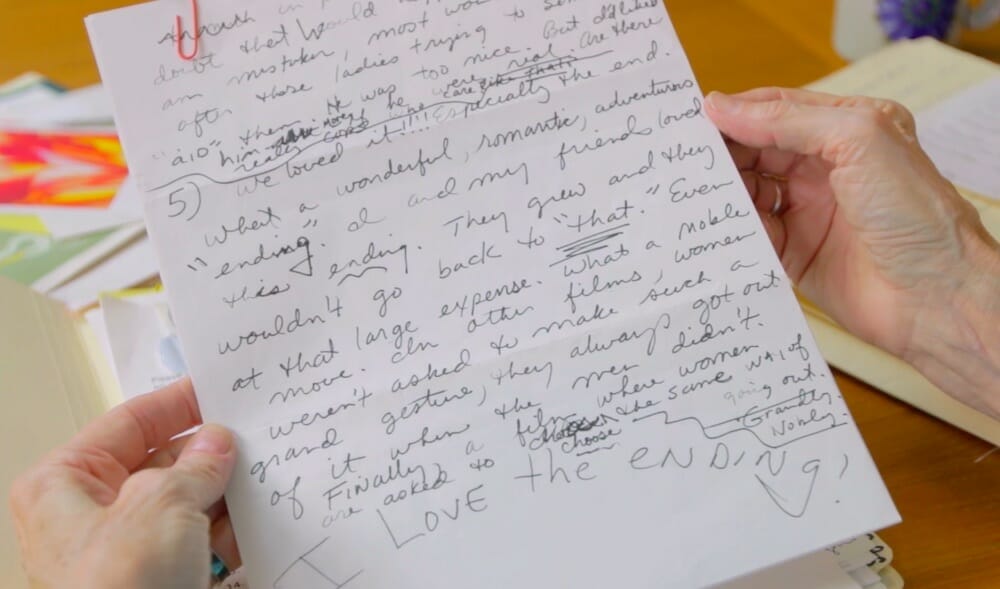 doubt that would
am mistaken, most wo
after those ladies trying to
"a 10" then He was too nice. But did like
him more he were real. Are there
really cops who care like that?
5) We loved it!!!! Especially the end.
What a wonderful, romantic, adventurous
"ending". I and my friends loved
this ending. They grew and they
wouldn't go back to "that." Even
at that large expense. What a noble
move. In other films, women
weren't asked to make such a
grand gesture, they always got out
of it when the men didn't.
Finally, a film where women
are asked to choose the same way of
going out.
Grandly.
Nobly.
I LOVE the ENDING!